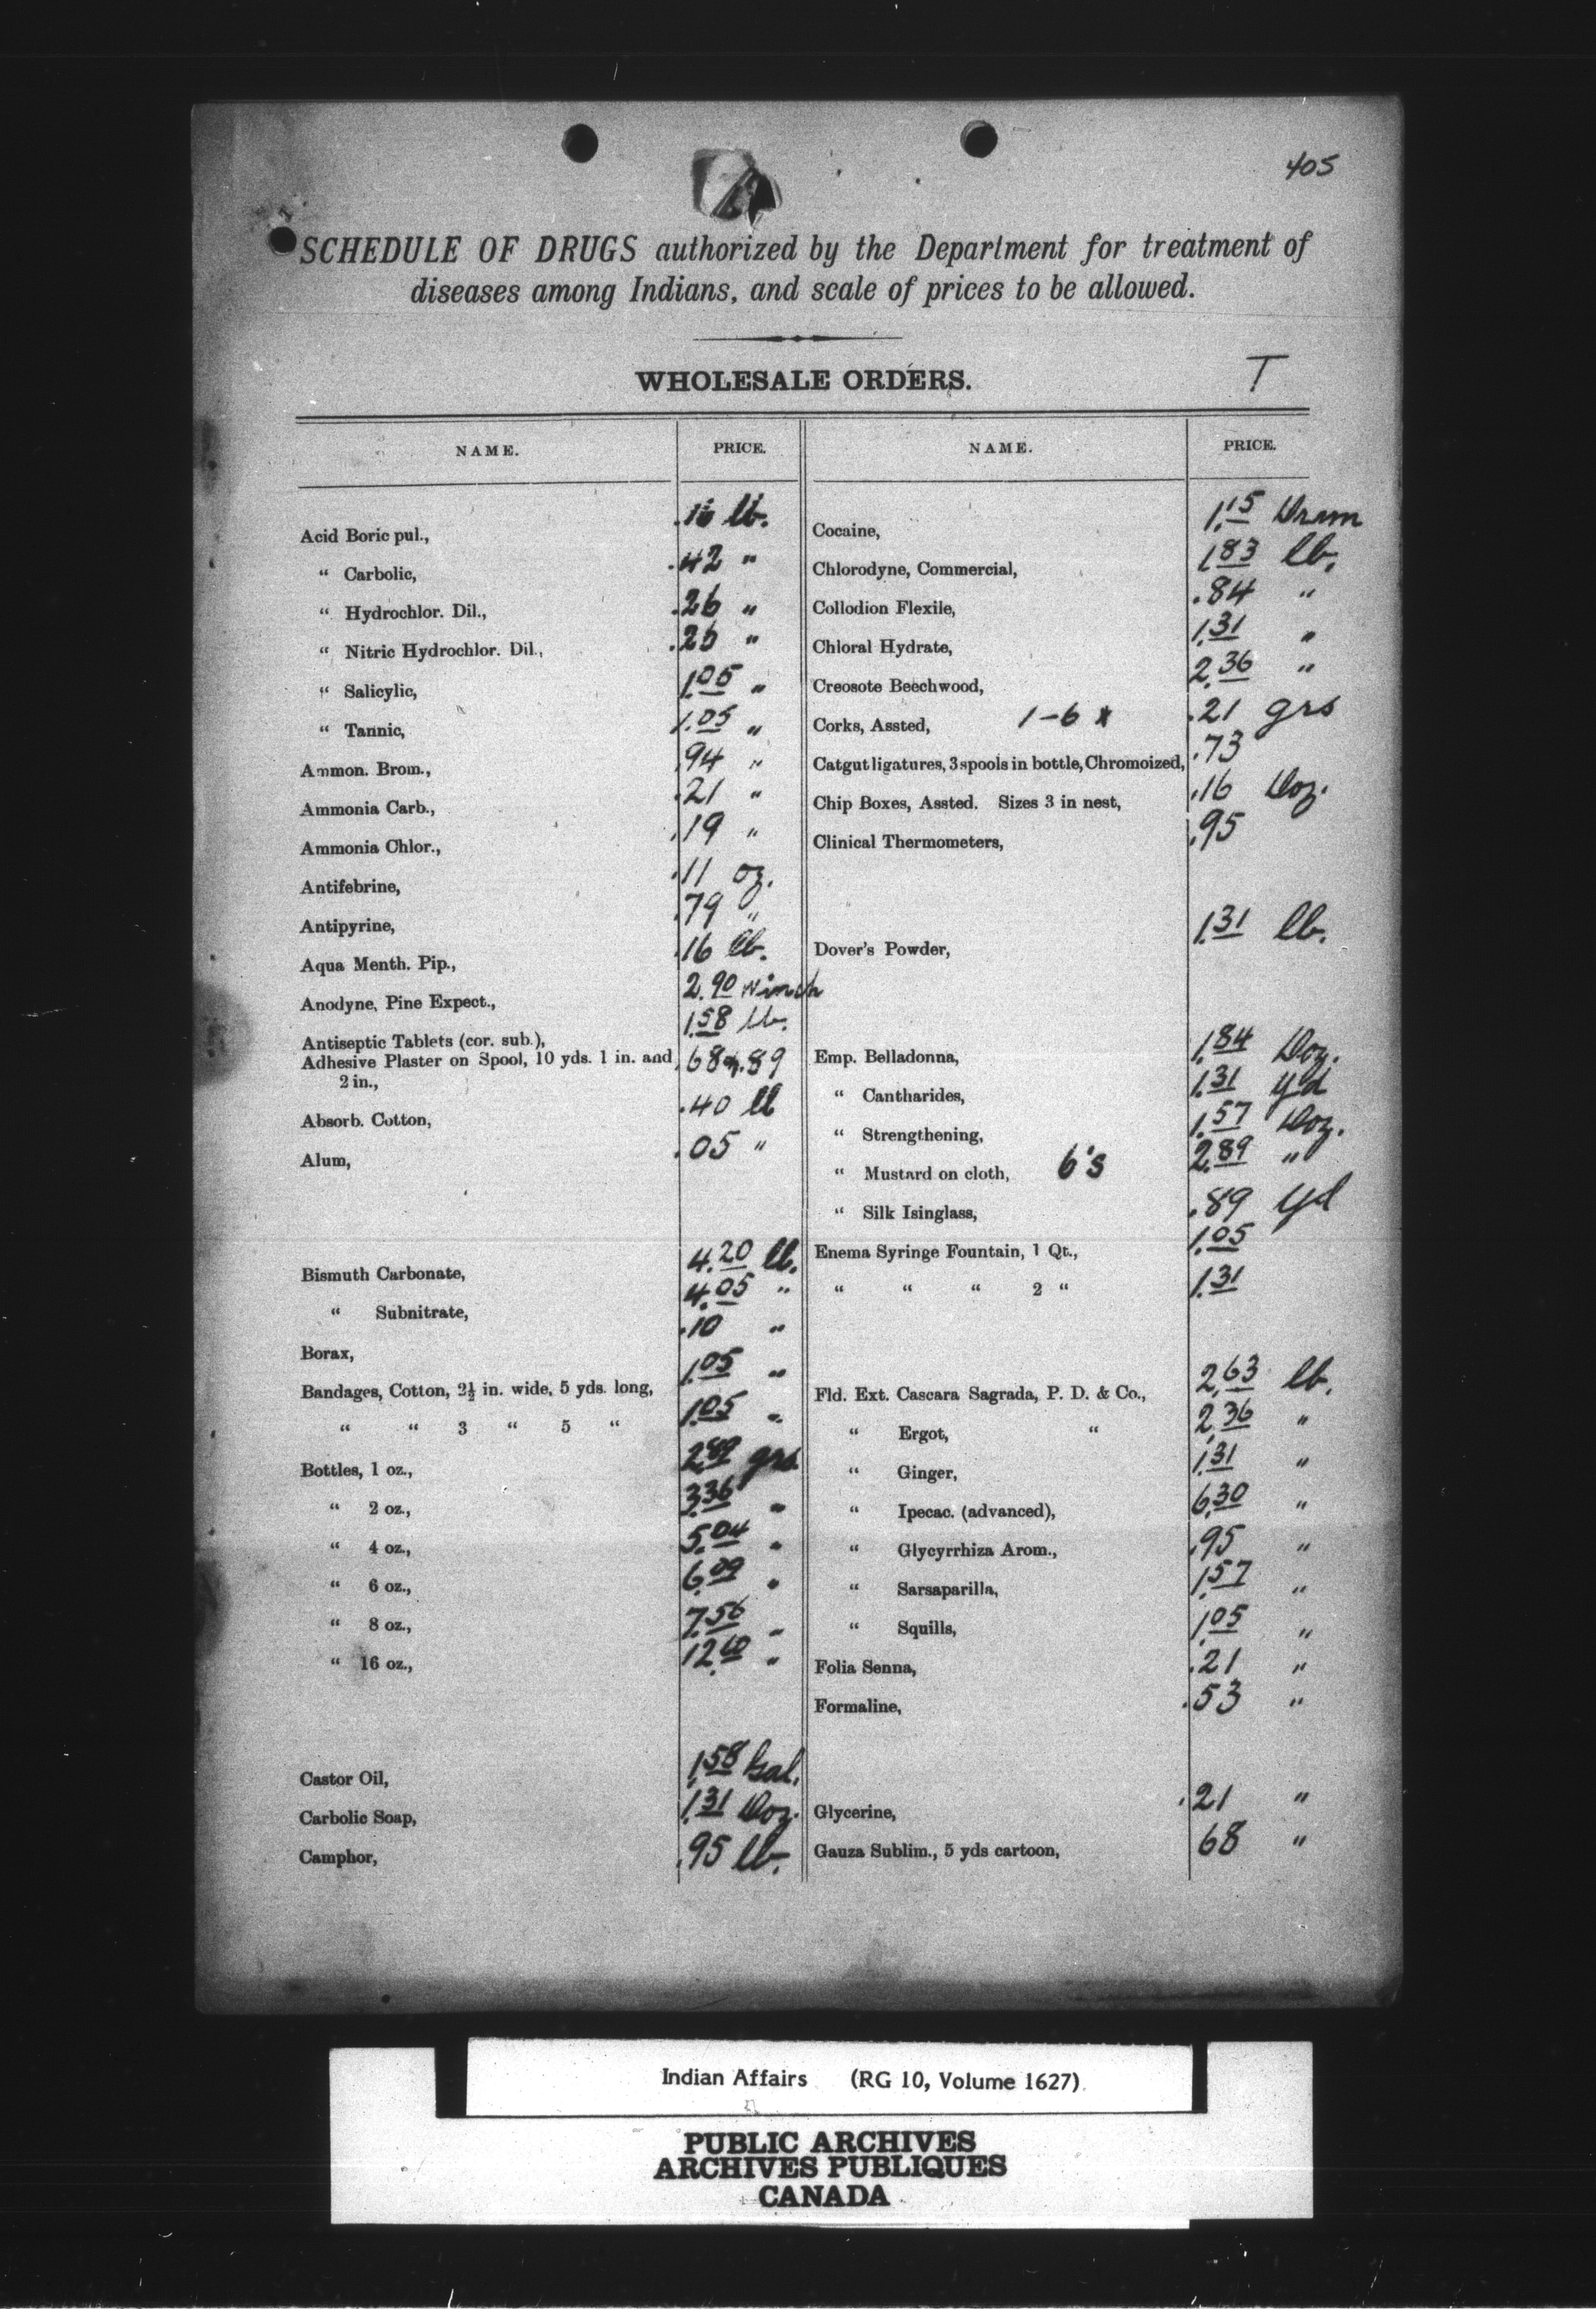 405
SCHEDULE OF DRUGS authorized by the Department for treatment of
diseases among Indians, and scale of prices to be allowed.
WHOLESALE ORDERS.
T
NAME. PRICE.
Acid Boric pul., lb.
“ Carbolic, .42 "
“ Hydrochlor. Dil., .26 "
“ Nitric Hydrochlor. Dil., "
“ Salicylic, 1.05 "
“ Tannic, 1.05 "
Ammon. Brom., .94 "
Ammonia Carb., .21 "
Ammonia Chlor., .19 "
Antifebrine, .11 oz.
Antipyrine, .79 "
Aqua Menth. Pip., .16 lb.
Anodyne, Pine Expect., 2.90 Winch
Antiseptic Tablets (cor. sub.), 1.58 lb.
Adhesive Plaster on Spool, 10 yds. 1 in. and .68 .89
2 in.,
Absorb. Cotton, .40 lb
Alum, .05 "
Bismuth Carbonate, 4.20 lb.
“ Subnitrate, 4.05 "
Borax, .10 "
Bandages, Cotton, 2½ in. wide, 5 yds. long, 1.05 "
“ “ 3 “ 5 “ 1.05 "
Bottles, 1 oz., 2.89 grs
“ 2 oz., 3.36 "
“ 4 oz., 5.04 "
“ 6 oz., 6.09 "
“ 8 oz., 7.56 "
“ 16 oz., 12.60 "
Castor Oil, 1.58 Gal.
Carbolic Soap, 1.31 Doz.
Camphor, .95 lb.
NAME. PRICE.
Cocaine, 1.15 Dram
Chlorodyne, Commercial, 1.83 lb.
Collodion Flexile, .84 "
Chloral Hydrate, 1.31 "
Creosote Beechwood, 2.36 "
Corks, Assted, 1-6 x .21 grs
Catgut ligatures, 3 spools in bottle, Chromoized, .73
Chip Boxes, Assted. Sizes 3 in nest, .16 Doz.
Clinical Thermometers, .95
Dover's Powder, 1.31 lb.
Emp. Belladonna, 1.84 Doz.
“ Cantharides, 1.31 yd
“ Strengthening, 1.57 Doz.
“ Mustard on cloth, 6's 2.89 "
“ Silk Isinglass, .89 yd
Enema Syringe Fountain, 1 Qt., 1.05
“ “ “ 2 “ 1.31
Fld. Ext. Cascara Sagrada, P. D. & Co., 2.63 lb.
“ Ergot, “ 2.36 "
“ Ginger, 1.31 "
“ Ipecac. (advanced), 6.30 "
“ Glycyrrhiza Arom., .95 "
“ Sarsaparilla, 1.57 "
“ Squills, 1.05 "
Folia Senna, .21 "
Formaline, .53 "
Glycerine, .21 "
Gauza Sublim., 5 yds cartoon, 68 "
Indian Affairs (RG 10, Volume 1627)
PUBLIC ARCHIVES
ARCHIVES PUBLIQUES
CANADA